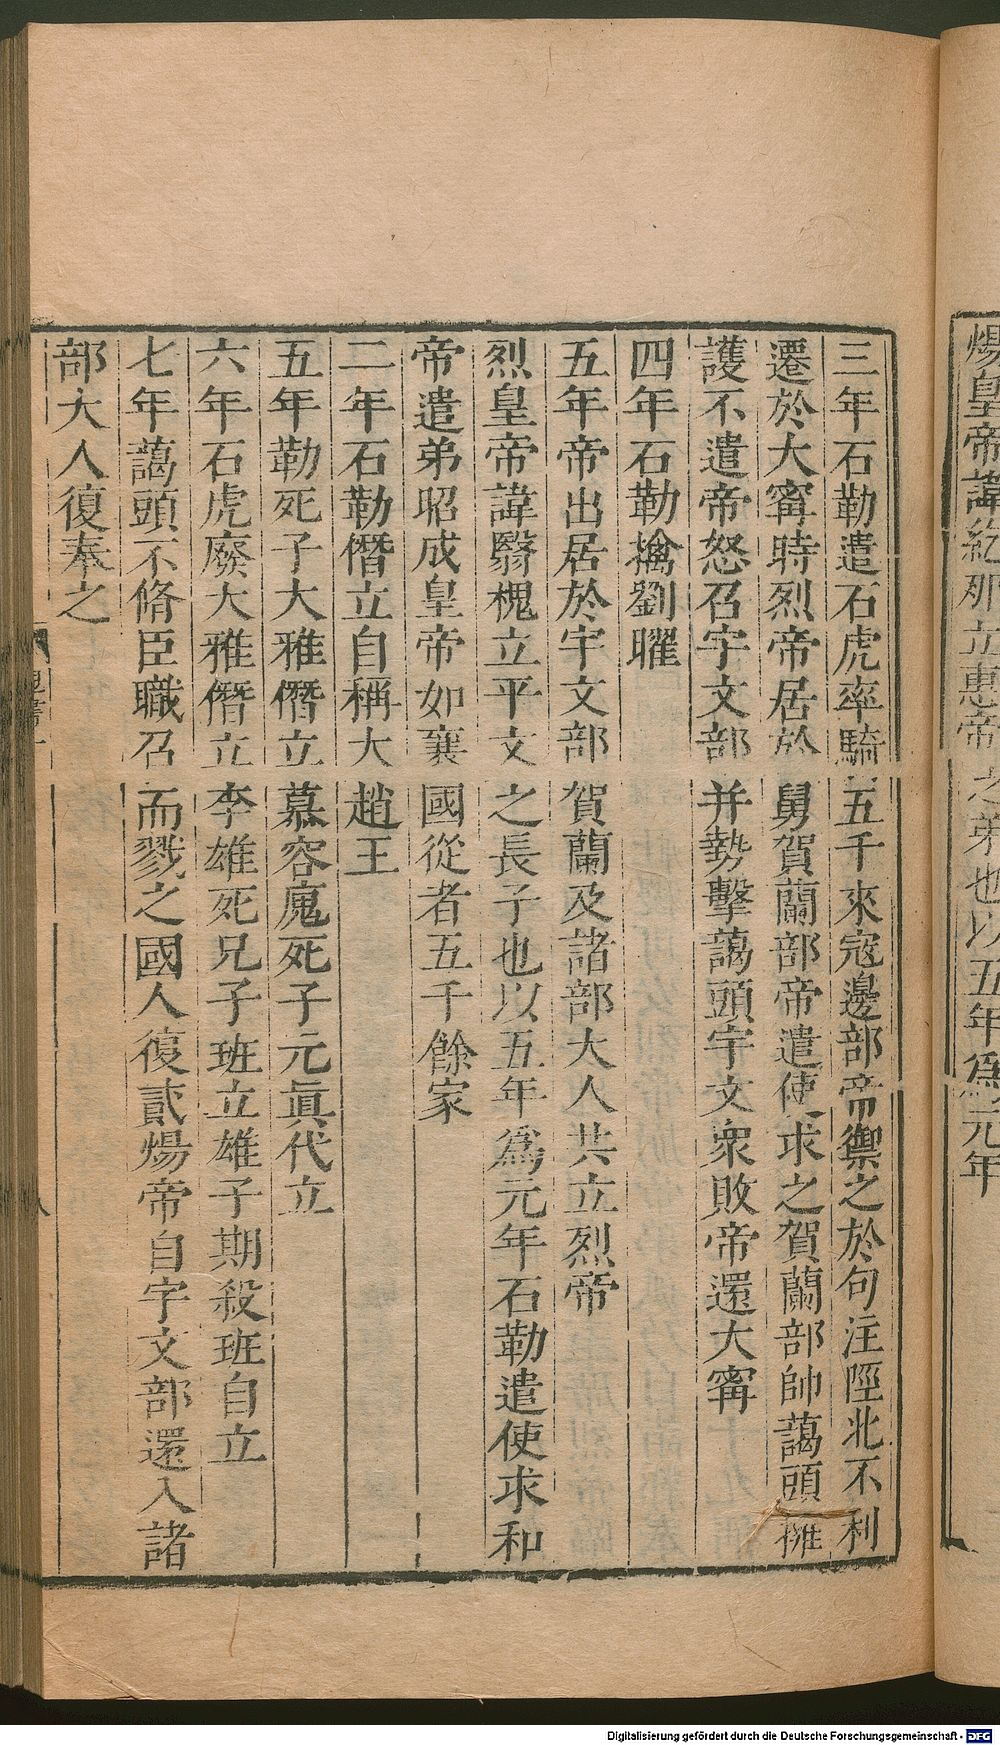 煬皇帝諱紇那立惠帝之弟也以五年爲元年
三年石勒遣石虎率騎五千來寇邊部帝禦之於句注陘北不利
遷於大甯時烈帝居於舅賀蘭部帝遣使求之賀蘭部帥藹頭擁
護不遣帝怒召宇文部并勢擊藹頭宇文衆敗帝還大甯
四年石勒擒劉曜
五年帝出居於宇文部賀蘭及諸部大人共立烈帝
烈皇帝諱翳槐立平文之長子也以五年爲元年石勒遣使求和
帝遣弟昭成皇帝如襄國從者五千餘家
二年石勒僭立自稱大趙王
五年勒死子大雅僭立慕容廆死子元眞代立
六年石虎廢大雅僭立李雄死兄子班立雄子期殺班自立
七年藹頭不脩臣職召而戮之國人復貳煬帝自宇文部還入諸
部大人復奉之
魏書一
八
Digitalisierung gefördert durch die Deutsche Forschungsgemeinschaft - DFG